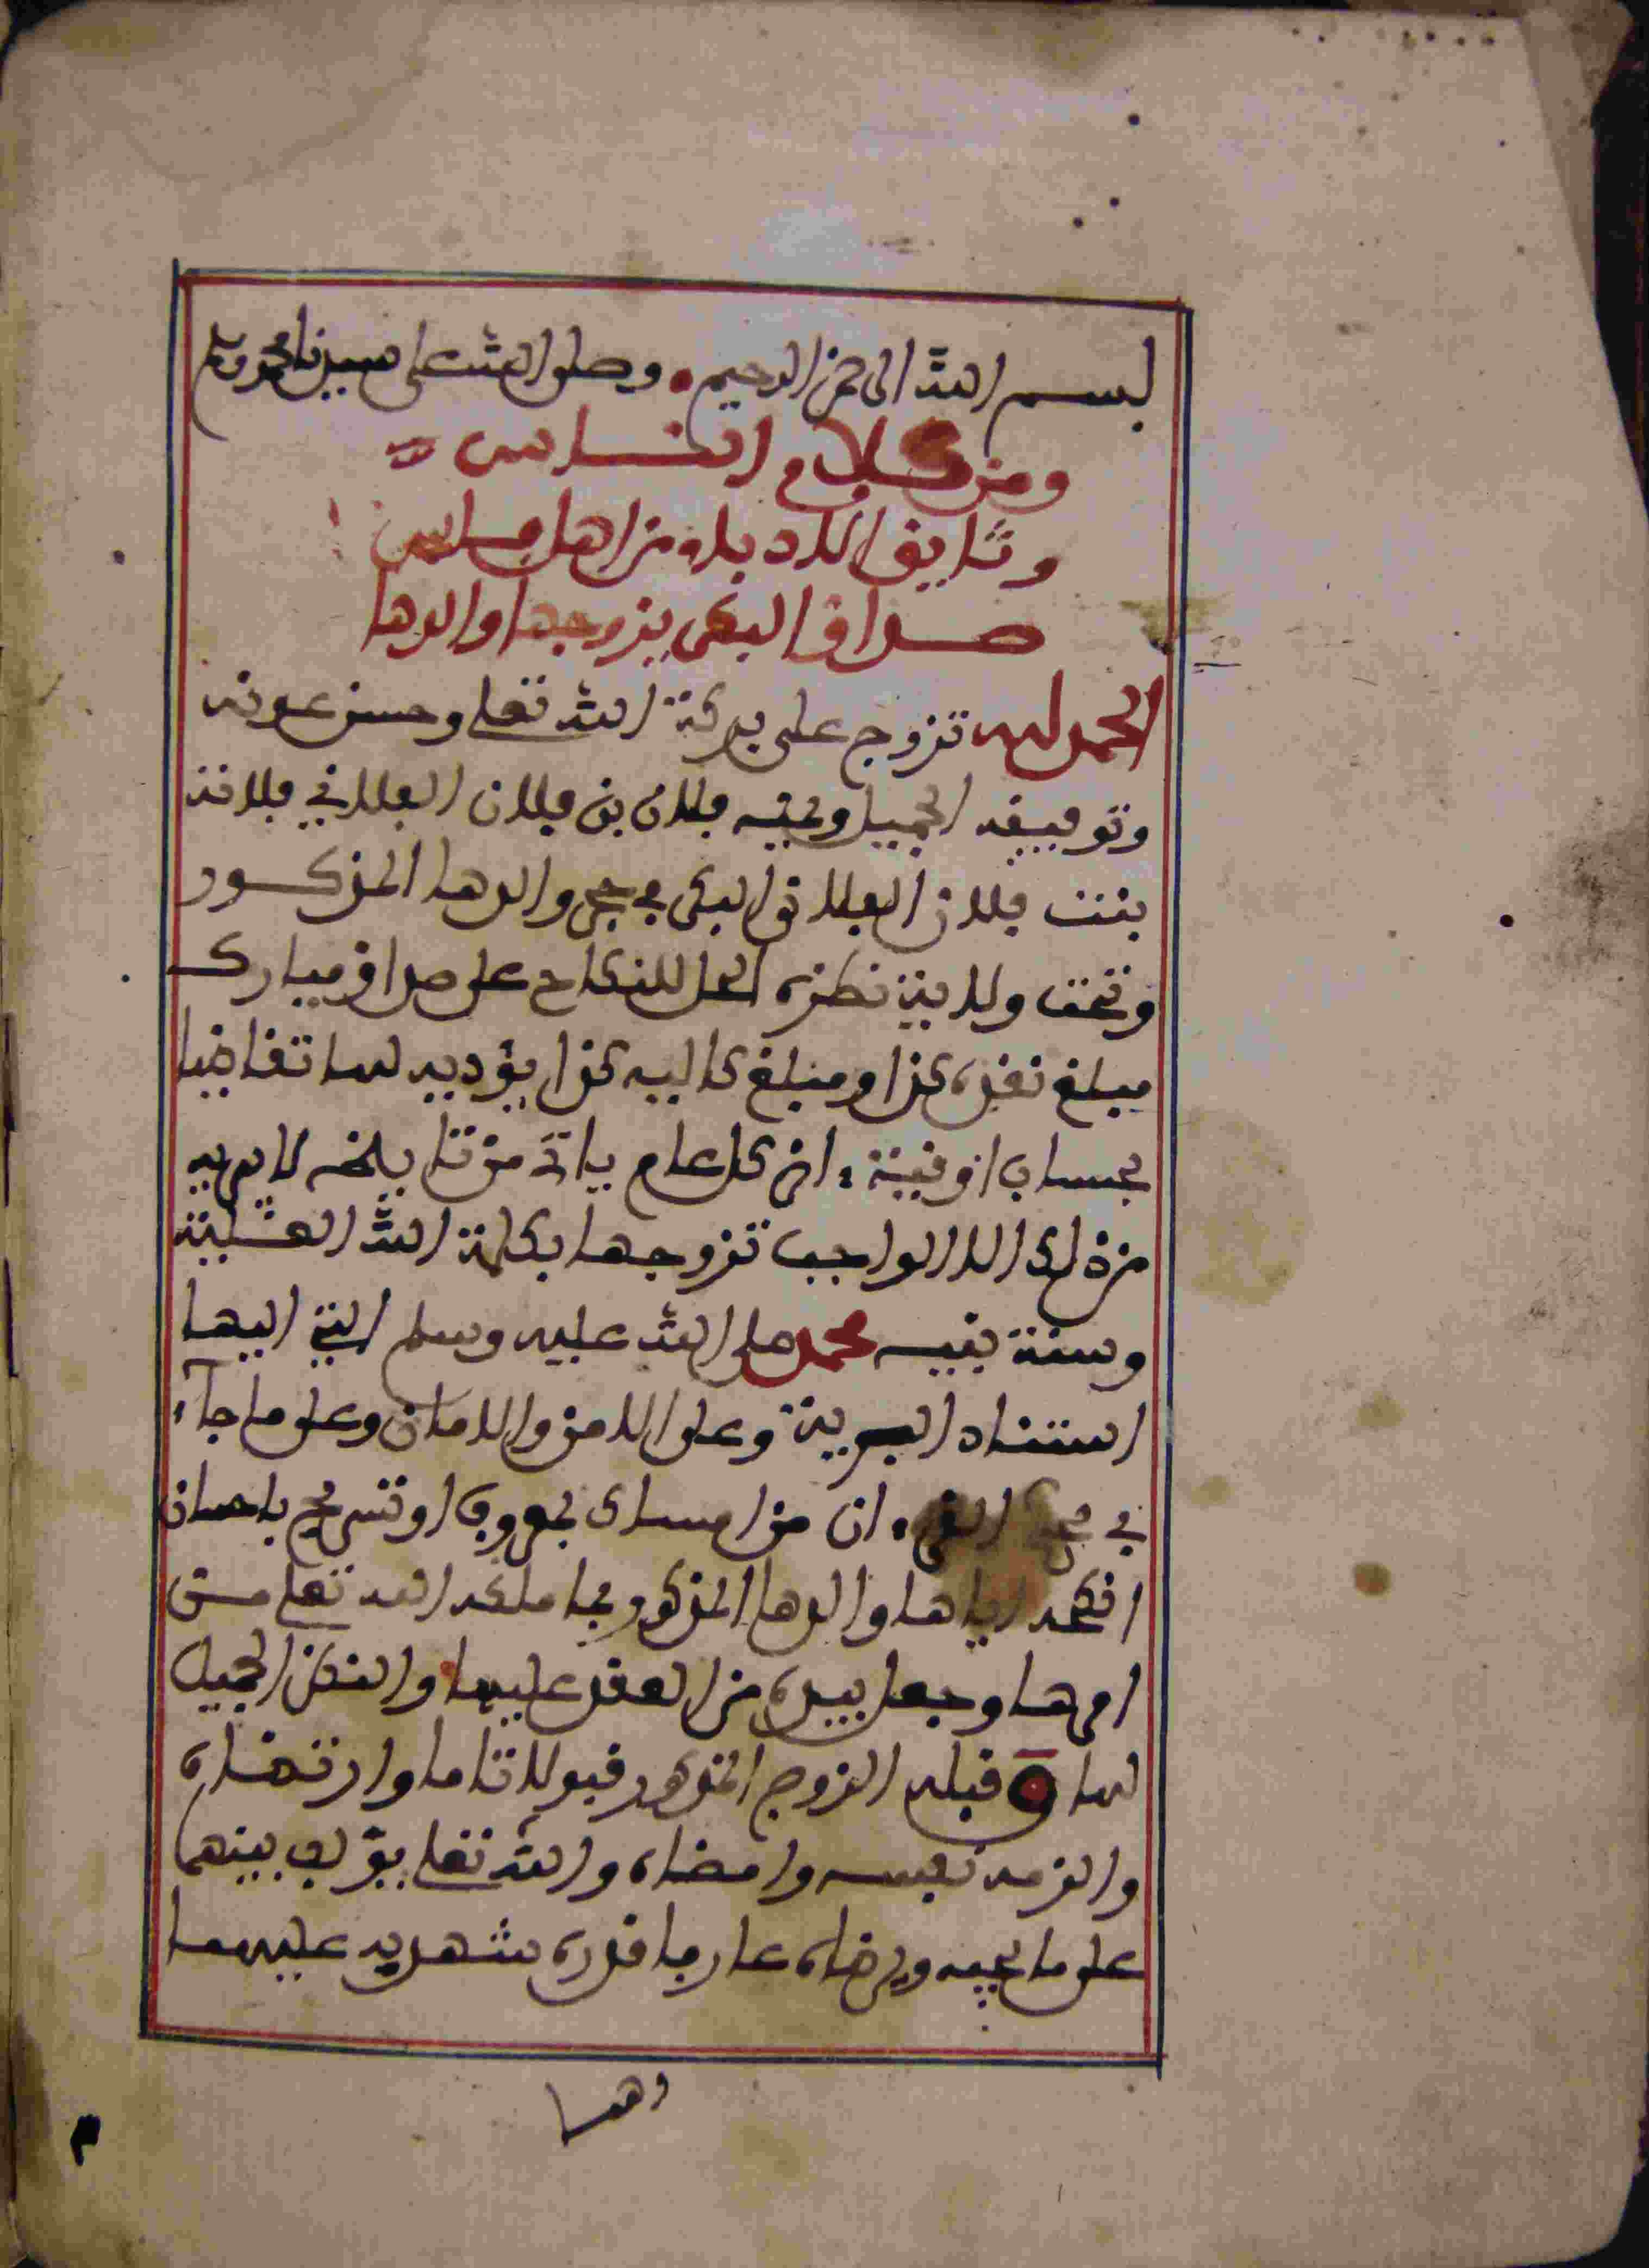 بسم الله الرحمن الرحيم. وصلى الله على سيدنا محمد وسلم
ومن كلام الناس
وثايق الادباء من اهل فاس
صداق البكر يزوجها والدها
الحمد لله تزوج على بركة الله تعلى وحسن عونه
وتوفيقه الجميل ويمنه فلان بن فلان الفلاني فلانة
بنت فلان الفلاني البكر في حجر والدها المذكور
وتحت ولاية نظره الحل للنكاح على صداق مبارك
مبلغ نقده كذا ومبلغ كاليه كذا يؤديه لها تقاضيا
بحساب اوقية، اثر كل عام ياتي من تاريخه لا يبريه
من ذلك الا الواجب تزوجها بكلمة الله العلية
وسنة نبيه محمد صلى الله عليه وسلم النبي اليها
استناد البرية وعلى الامن والامان وعلى ما جآء
في محكم القرءان من امساك بمعروف او تسريح باحسان
انكحه اياها والدها المذكور بما ملكه الله تعلى من
امرها وجعل بيده من العقد عليها والنظر الجميل
لها و قبله الزوج المذكور قبولا تاما وارتضاه
والزمه نفسه وامضاه والله تعلى يؤلف بينهما
على ما يحبه ويرضاه عارفا قدره شهد به عليهما
وهما